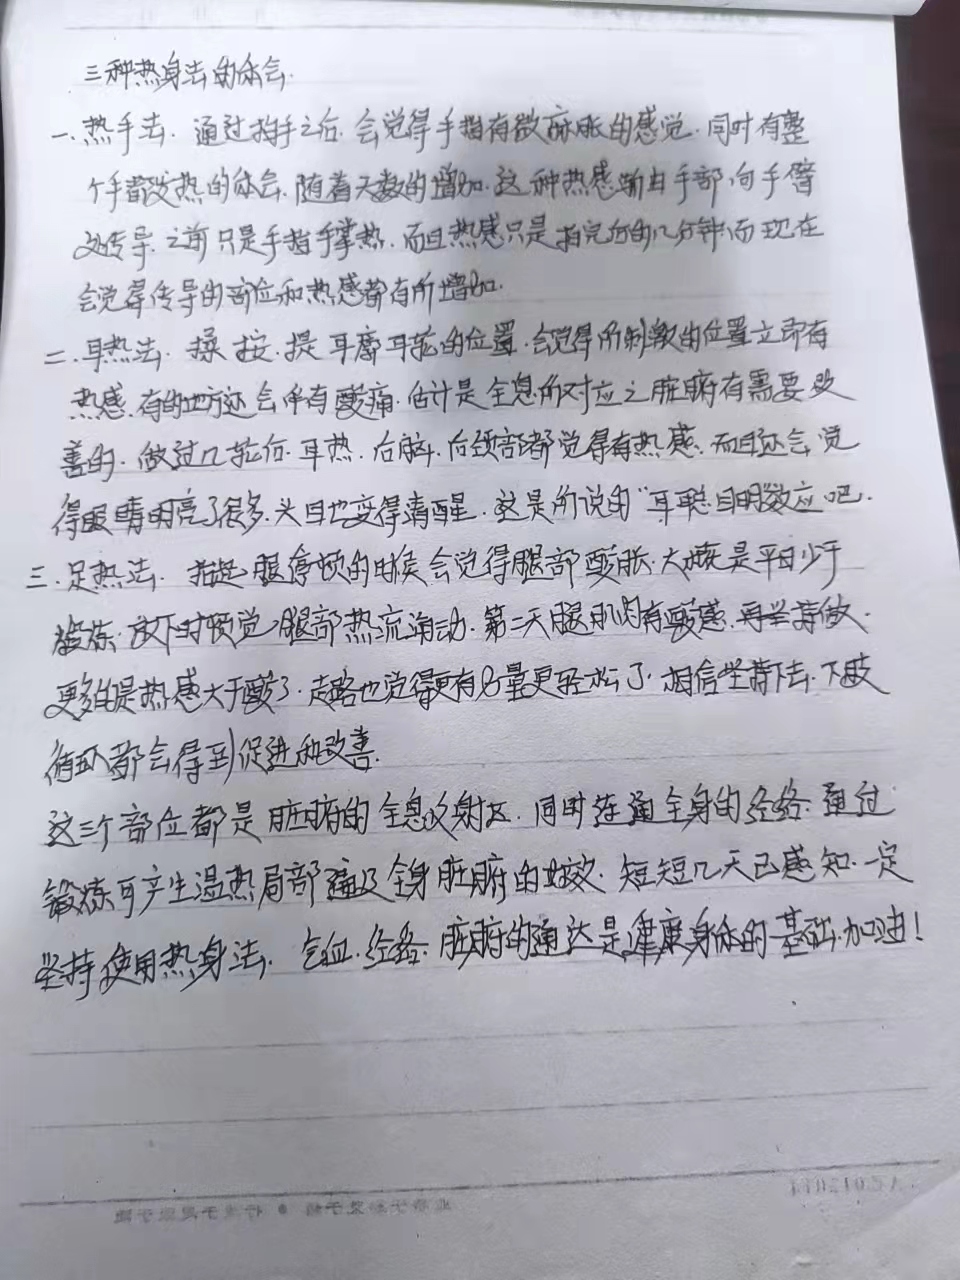 三种热身法的体会.
一.热手法. 通过拍手之后.会觉得手指有微麻胀的感觉.同时有整
个手都发热的体会.随着天数的增加.这种热感渐由手部向手臂
处传导.之前只是手指手掌热.而且热感只是拍完后的几分钟而现在
会觉得传导的部位和热感都有所增加.
二.耳热法. 揉.按.提 耳廓耳轮的位置.会觉得所刺激的位置立即有
热感.有的地方还会伴有酸痛.估计是全息所对应之脏腑有需要改
善的.做过几轮后.耳热.后脖.后颈部都觉得有热感.而且还会觉
得眼睛明亮了很多.头目也变得清醒.这是所说的"耳聪目明"效应吧.
三.足热法. 抬起腿停顿的时候会觉得腿部酸胀.大概是平日少于
锻炼.放下时顿觉腿部热流涌动.第二天腿肌肉有酸感.再坚持做.
更多的是热感大于酸了.走路也觉得更有力量更轻松了.相信坚持下去.下肢
循环都会得到促进和改善.
这三个部位都是脏腑的全息反射区.同时连通全身的经络.通过
锻炼可产生温热局部遍及全身脏腑的功效.短短几天已感知.一定
坚持使用热身法. 气血.经络.脏腑的通达是健康身体的基础.加油!